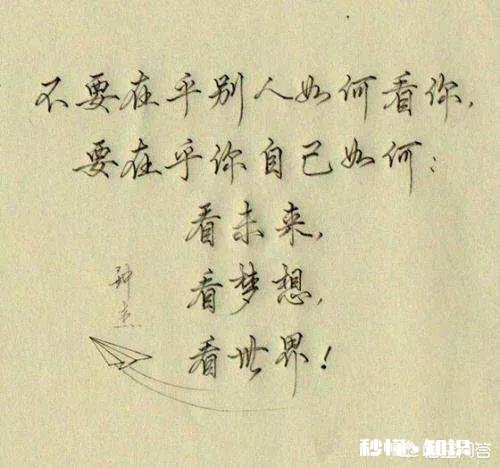 不要在乎别人如何看你,
要在乎你自己如何:
看未来,
看梦想,
看世界!
钟杰
秒懂 知识